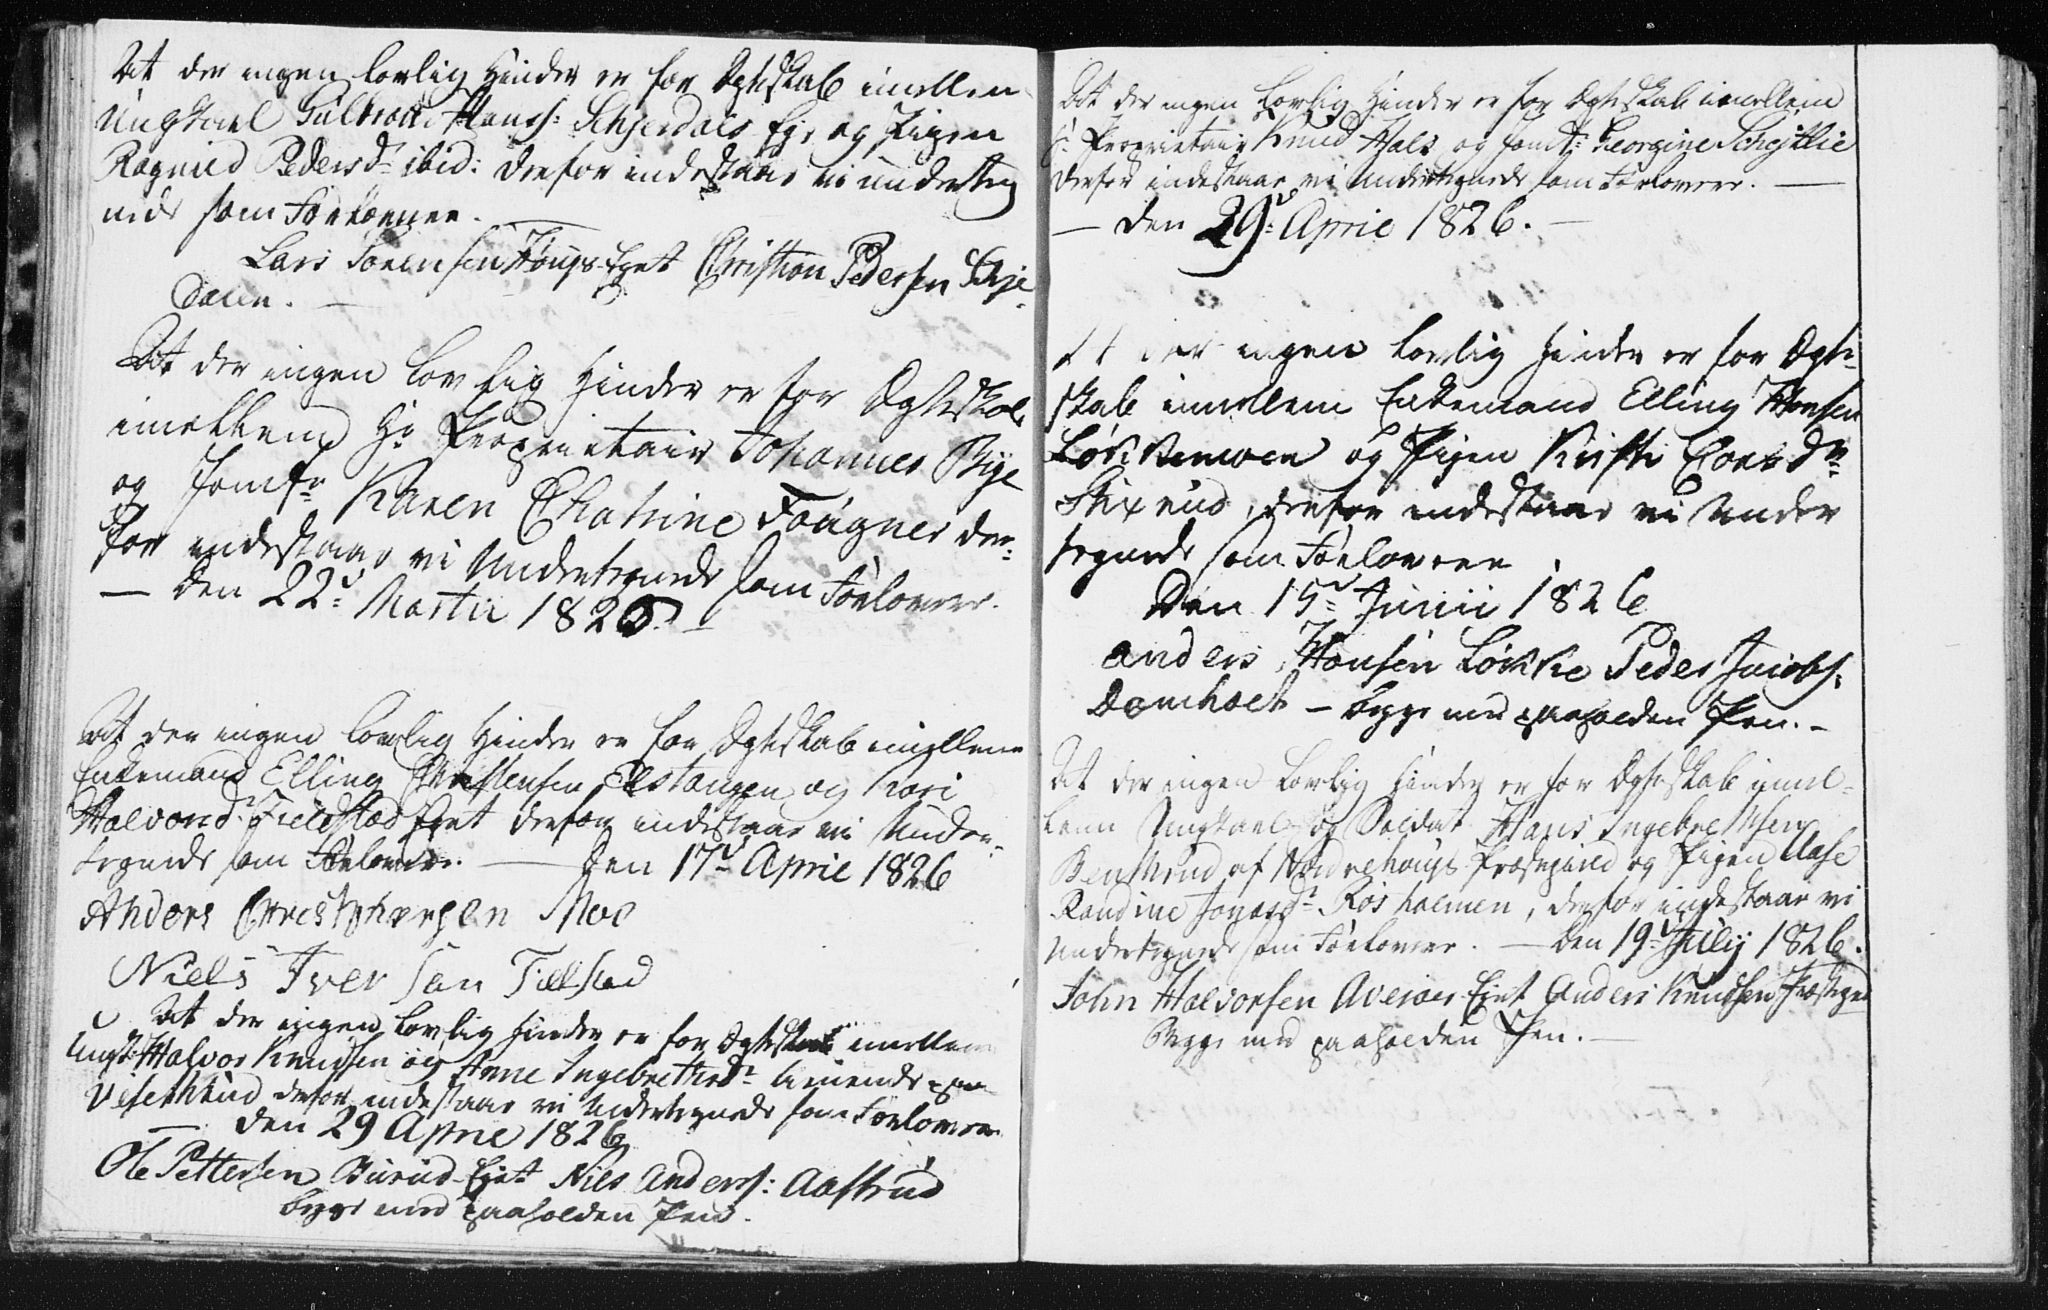 At der ingen lovlig Hinder er for Ægteskab imellem
Ungkarl Gulbrand Hanss: Schjerdals Eje og Pigen
Ragnild Pedersdr ibid: derfor indestaar vi underteg
nede som Forlovere.
Lars Sørensen Hougs-Ejet Christian Pedersen Schje-
dalen.
At der ingen lovlig Hinder er for Ægteskab
imellem Hr Proprietair Johannes Bye
og Jomfr Karen Chatrine Fougner der-
for indestaar vi Undertegnede som Forlovere.
— Den 22de Martii 1826. —
At der ingen lovlig Hinder er for Ægteskab imellem
Enkemand Elling Christensen Elstangen og Kari
Halvorsd: Fieldstad Ejet derfor indestaar vi Under-
tegnede som Forlovere. — Den 17de April 1826
Anders Christophersen Moe
Niels Iver sen Tilstad
At der ingen lovlig Hinder er for Ægteskab imellem
Ungk: Halvor Knudsen og Anne Ingebretsdr tienende paa
Vesetrud derfor indestaar vi Undertegnede som Forlovere
— Den 29 April 1826
Ole Pettersen Burud-Ejet Niels Anderss: Aastrud
begge med paaholden Pen.
At der ingen Lovlig Hinder er for Ægteskab imellem
Hr Proprietair Knud Hals og Jomf: Georgine Schjøtlie
derfor indestaar vi Undertegnede som Forlovere. —
— Den 29de April 1826. —
At der ingen lovlig Hinder er for Ægte-
skab imellem Enkemand Elling Hansen
Løkkemoen og Pigen Kirsti Larsdr
Skixrud, derfor indestaar vi Under
tegnede som Forlovere.
Den 15de Junii 1826
Anders Hansen Løkke Peder Jacobs.
Damholt — begge med paaholden Pen. —
At der ingen Lovlig Hinder er for Ægteskab imel-
lem Ungkarl og Soldat Hans Ingebrethsen
Benthrud af Norderhougs Præstegield og Pigen Aase
Randine Jonasdr Røsholmen, derfor indestaar vi
Undertegnede som Forlovere. — Den 19de July 1826.
John Halvorsen Averøes-Ejet Anders Knudsen Præsteget
Begge med paaholden Pen. —